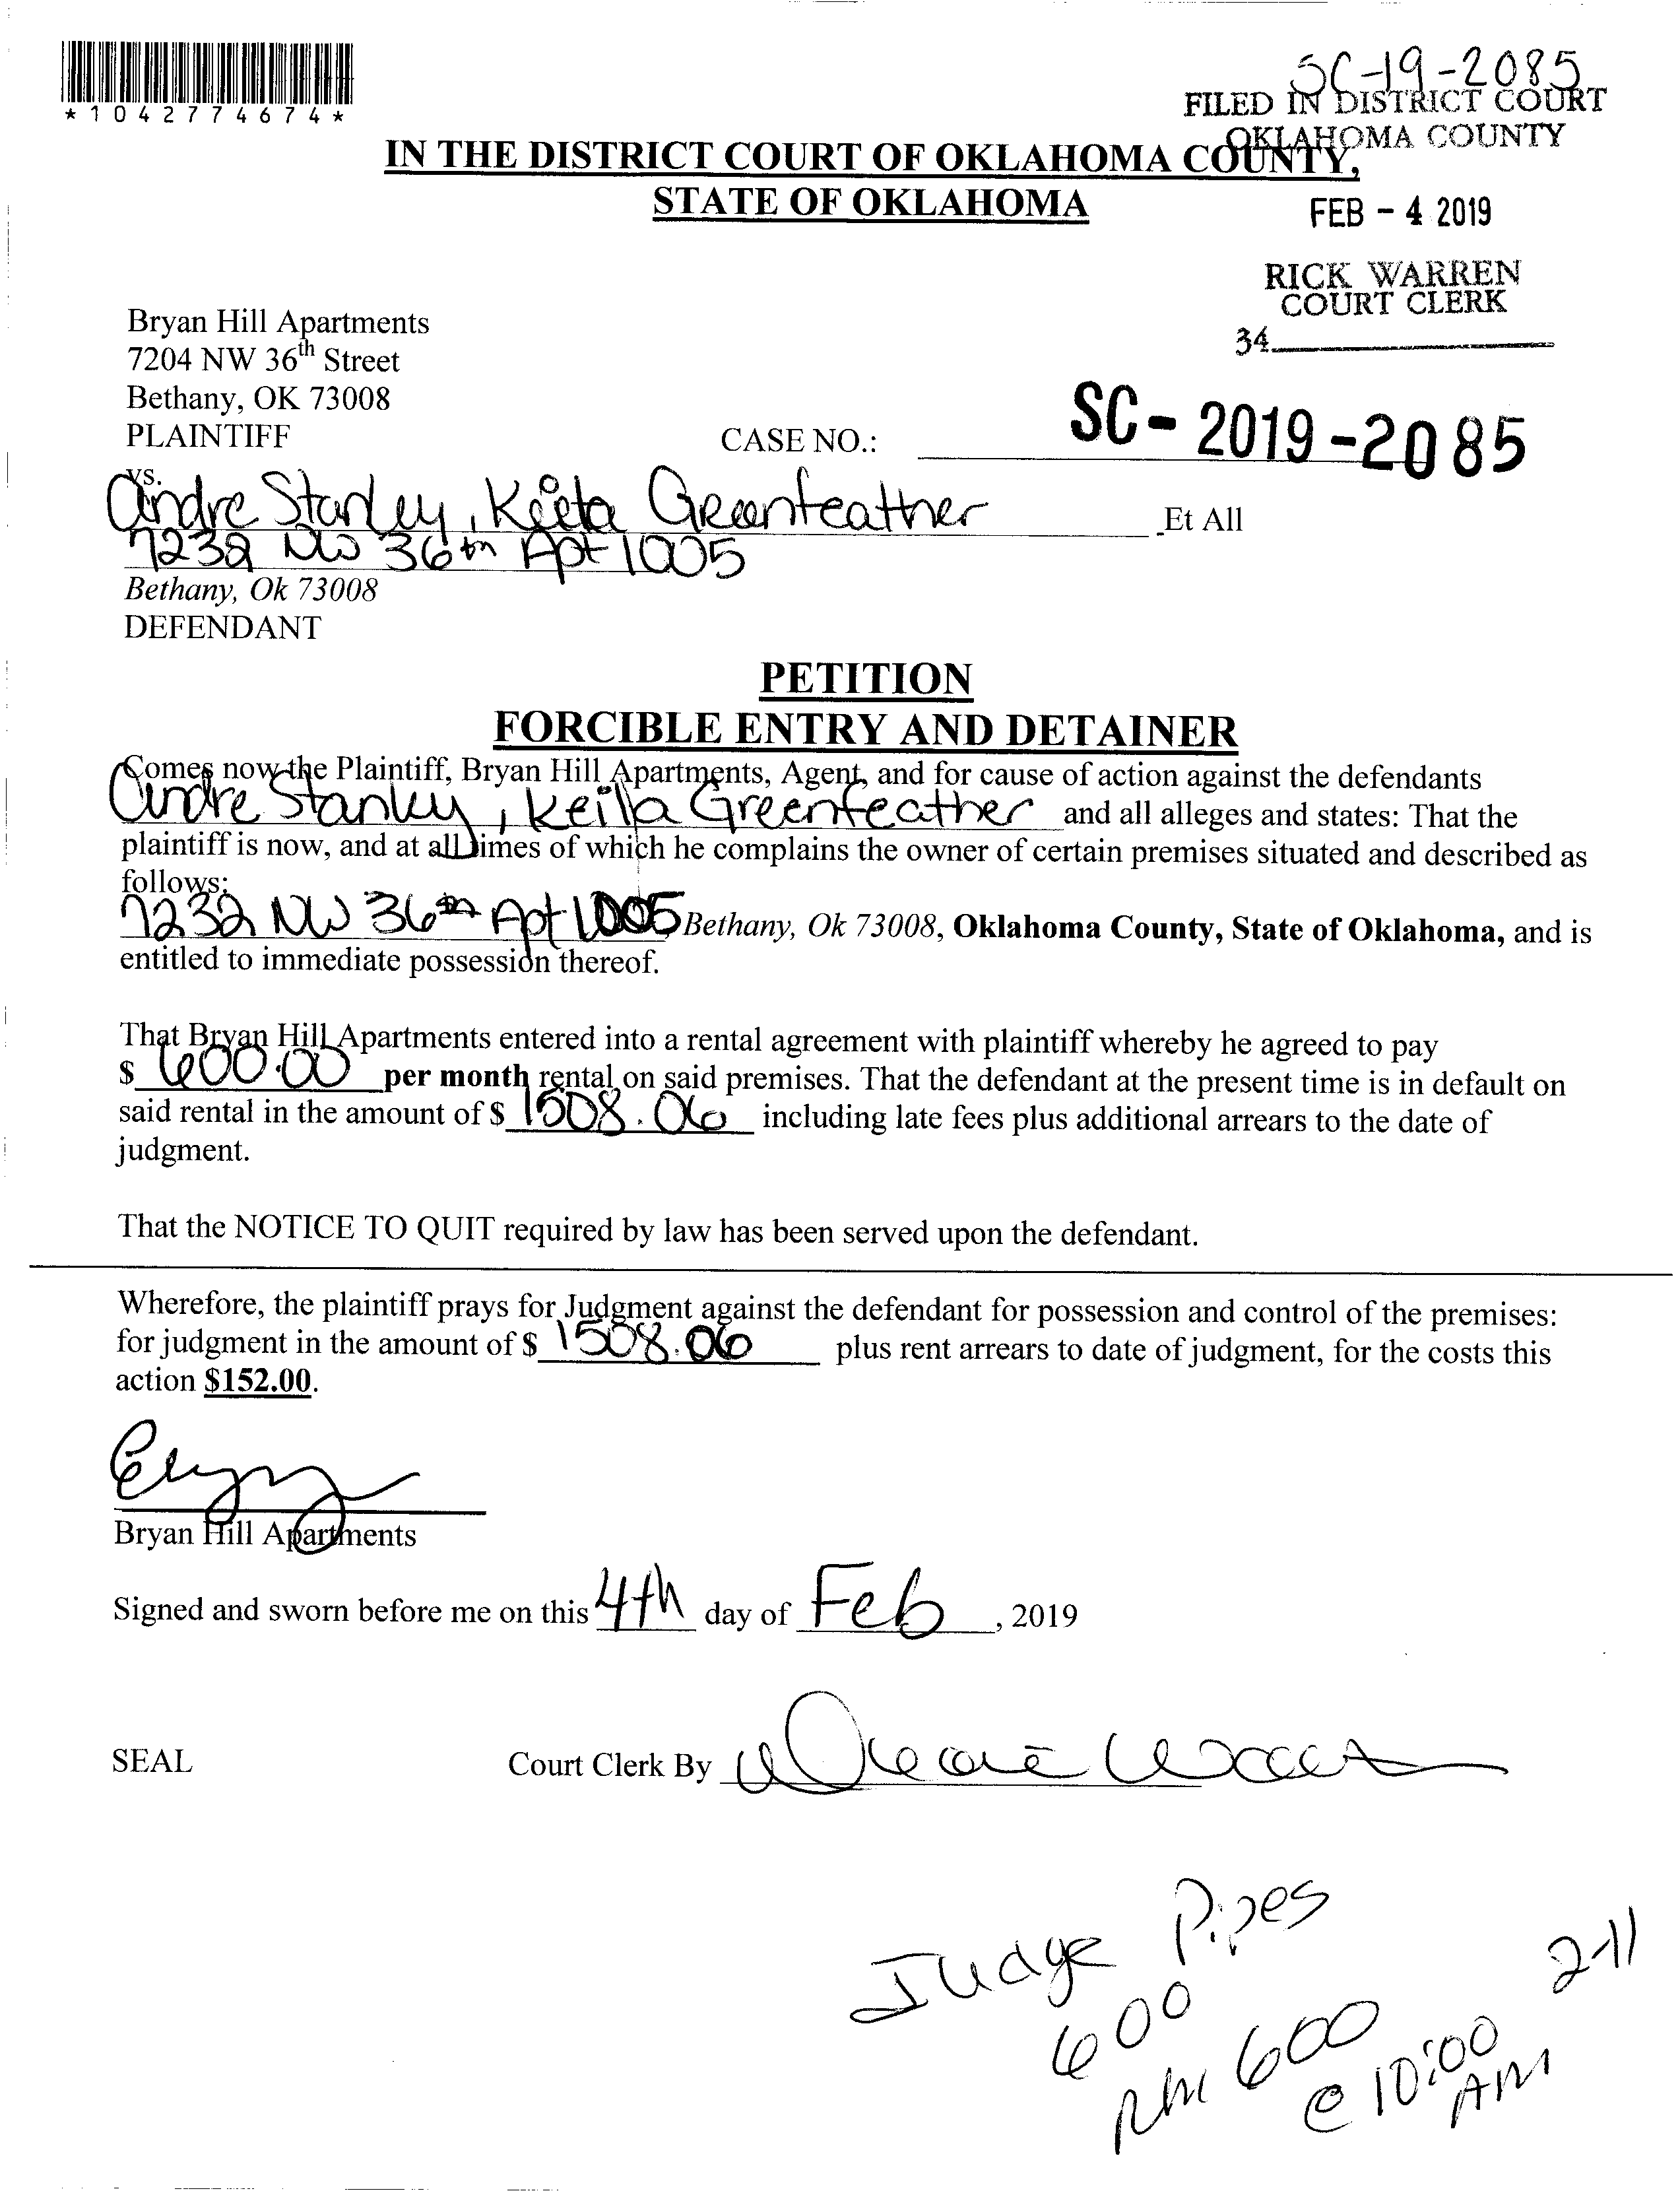 SC-19-2085
*1042774674*
FILED IN DISTRICT COURT
OKLAHOMA COUNTY
IN THE DISTRICT COURT OF OKLAHOMA COUNTY,
STATE OF OKLAHOMA
FEB - 4 2019
RICK WARREN
COURT CLERK
34
Bryan Hill Apartments
7204 NW 36th Street
Bethany, OK 73008
PLAINTIFF
CASE NO.: SC- 2019-2085
vs.
Andre Stanley, Keila Greenfeather Et All
7232 NW 36th Apt 1005
Bethany, Ok 73008
DEFENDANT
PETITION
FORCIBLE ENTRY AND DETAINER
Comes now the Plaintiff, Bryan Hill Apartments, Agent, and for cause of action against the defendants
Andre Stanley, Keila Greenfeather and all alleges and states: That the
plaintiff is now, and at all times of which he complains the owner of certain premises situated and described as
follows:
7232 NW 36th Apt 1005 Bethany, Ok 73008, Oklahoma County, State of Oklahoma, and is
entitled to immediate possession thereof.
That Bryan Hill Apartments entered into a rental agreement with plaintiff whereby he agreed to pay
$ 600.00 per month rental on said premises. That the defendant at the present time is in default on
said rental in the amount of $ 1508.06 including late fees plus additional arrears to the date of
judgment.
That the NOTICE TO QUIT required by law has been served upon the defendant.
Wherefore, the plaintiff prays for Judgment against the defendant for possession and control of the premises:
for judgment in the amount of $ 1508.06 plus rent arrears to date of judgment, for the costs this
action $152.00.
Bryan Hill Apartments
Signed and sworn before me on this 4th day of Feb, 2019
SEAL
Court Clerk By
Judge Pipes
600
RM 600
2-11
@ 10:00
AM